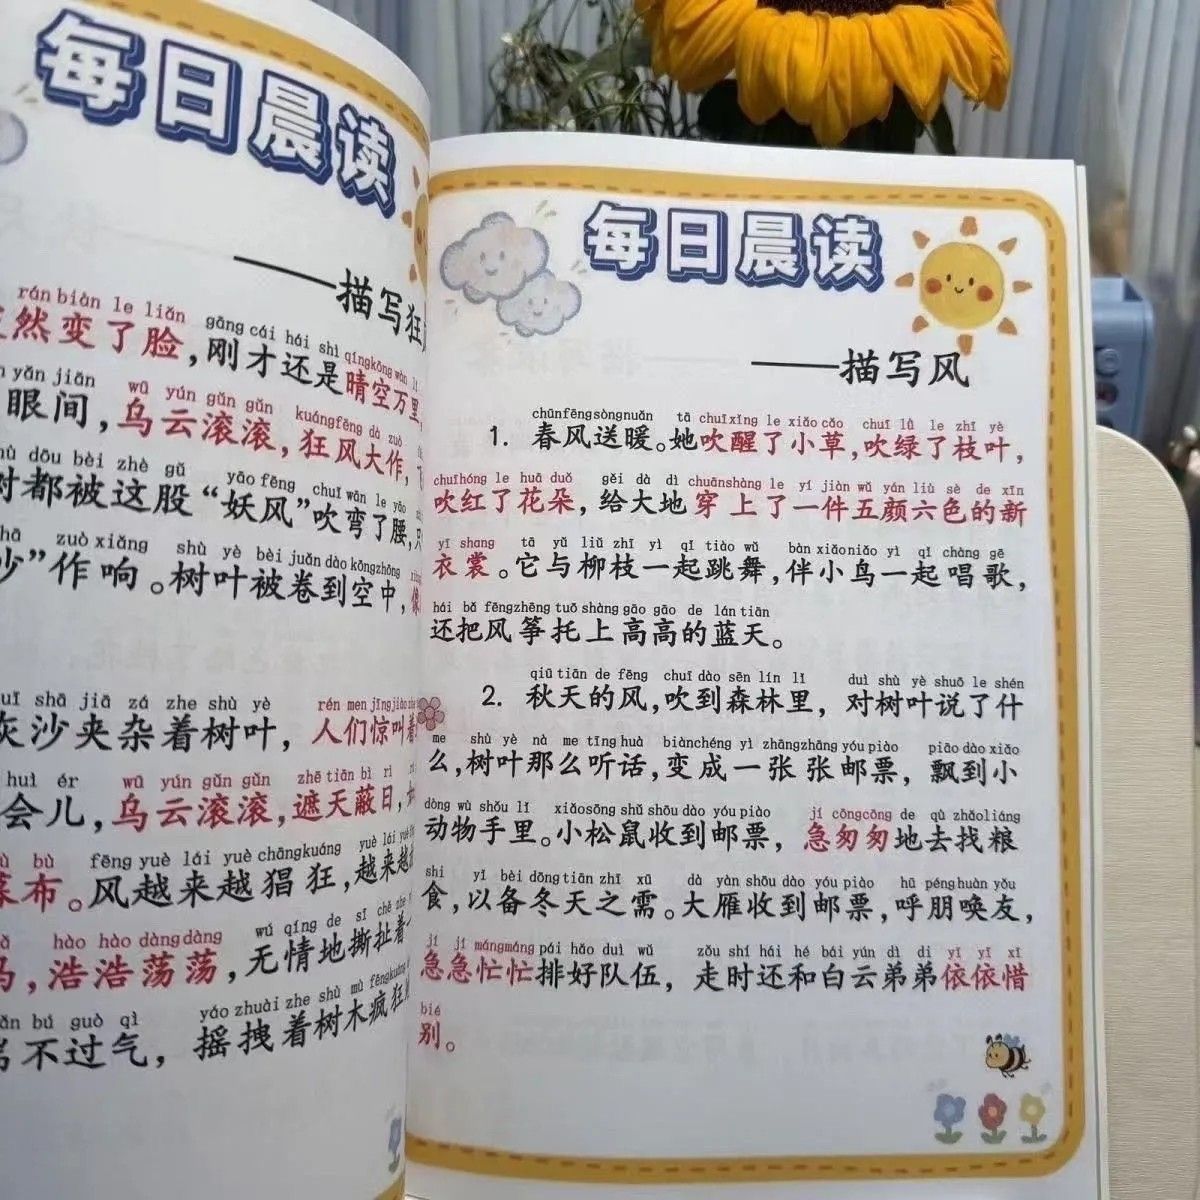 每日晨读
——描写狂
rán biàn le liǎn gāng cái hái shì qíng kōng wàn lǐ
然变了脸,刚才还是晴空万里,
yǎn jiān wū yún gǔn gǔn kuáng fēng dà zuò
眼间,乌云滚滚,狂风大作,
dōu bèi zhè gǔ yāo fēng chuī wān le yāo
树都被这股“妖风”吹弯了腰,
zuò xiǎng shù yè bèi juǎn dào kōng zhōng
沙”作响。树叶被卷到空中,
shā jiā zá zhe shù yè rén men jīng jiào
灰沙夹杂着树叶,人们惊叫着
huì ér wū yún gǔn gǔn zhē tiān bì rì
会儿,乌云滚滚,遮天蔽日,
bù fēng yuè lái yuè chāng kuáng yuè lái yuè
瀑布。风越来越猖狂,越来越
hào hào dàng dàng wú qíng de sī chě zhe
马,浩浩荡荡,无情地撕扯着
bú guò qì yáo zhuài zhe shù mù fēng kuáng
喘不过气,摇拽着树木疯狂
每日晨读
——描写风
chūn fēng sòng nuǎn tā chuī xǐng le xiǎo cǎo chuī lǜ le zhī yè
1. 春风送暖。她吹醒了小草,吹绿了枝叶,
chuī hóng le huā duǒ gěi dà dì chuān shàng le yí jiàn wǔ yán liù sè de xīn
吹红了花朵,给大地穿上了一件五颜六色的新
yī shang tā yǔ liǔ zhī yì qǐ tiào wǔ bàn xiǎo niǎo yì qǐ chàng gē
衣裳。它与柳枝一起跳舞,伴小鸟一起唱歌,
hái bǎ fēng zhēng tuō shàng gāo gāo de lán tiān
还把风筝托上高高的蓝天。
qiū tiān de fēng chuī dào sēn lín lǐ duì shù yè shuō le shén
2. 秋天的风,吹到森林里,对树叶说了什
me shù yè nà me tīng huà biàn chéng yì zhāng zhāng yóu piào piāo dào xiǎo
么,树叶那么听话,变成一张张邮票,飘到小
dòng wù shǒu lǐ xiǎo sōng shǔ shōu dào yóu piào jí cōng cōng de qù zhǎo liáng
动物手里。小松鼠收到邮票,急匆匆地去找粮
shi yǐ bèi dōng tiān zhī xū dà yàn shōu dào yóu piào hū péng huàn yǒu
食,以备冬天之需。大雁收到邮票,呼朋唤友,
jí jí máng máng pái hǎo duì wǔ zǒu shí hái hé bái yún dì di yī yī xī
急急忙忙排好队伍,走时还和白云弟弟依依惜
bié
别。